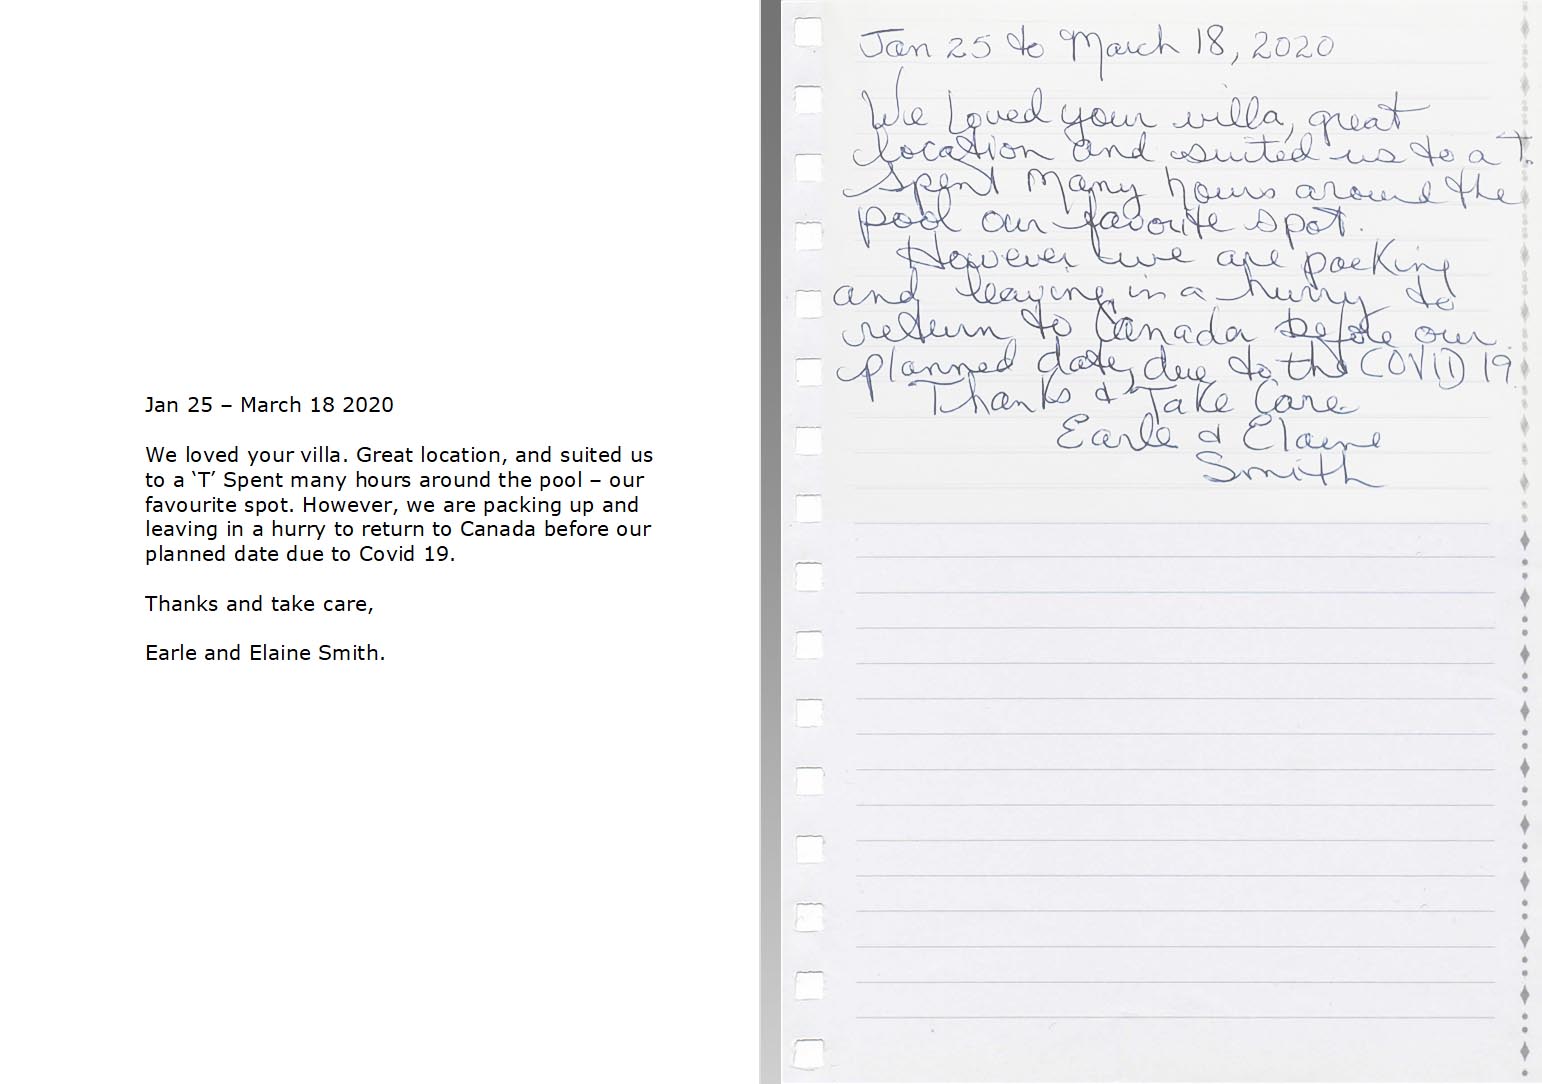 Jan 25 – March 18 2020
We loved your villa. Great location, and suited us
to a ‘T’ Spent many hours around the pool – our
favourite spot. However, we are packing up and
leaving in a hurry to return to Canada before our
planned date due to Covid 19.
Thanks and take care,
Earle and Elaine Smith.
Jan 25 to March 18, 2020
We Loved your villa, great
location and suited us to a T.
Spent Many hours around the
pool our favorite spot.
However we are packing
and leaving in a hurry to
return to Canada before our
planned date, due to the COVID 19.
Thanks & Take Care
Earle & Elaine
Smith